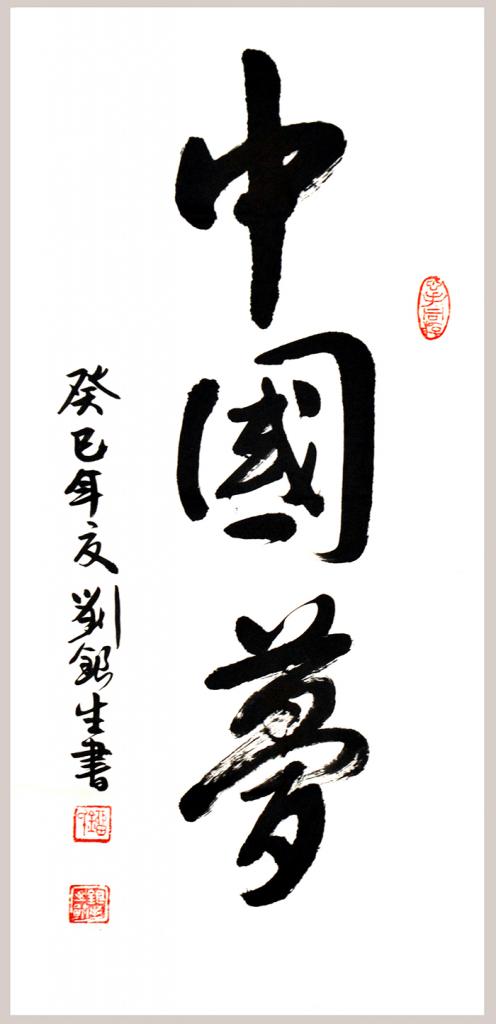 中國夢
癸巳年夏劉銀生書